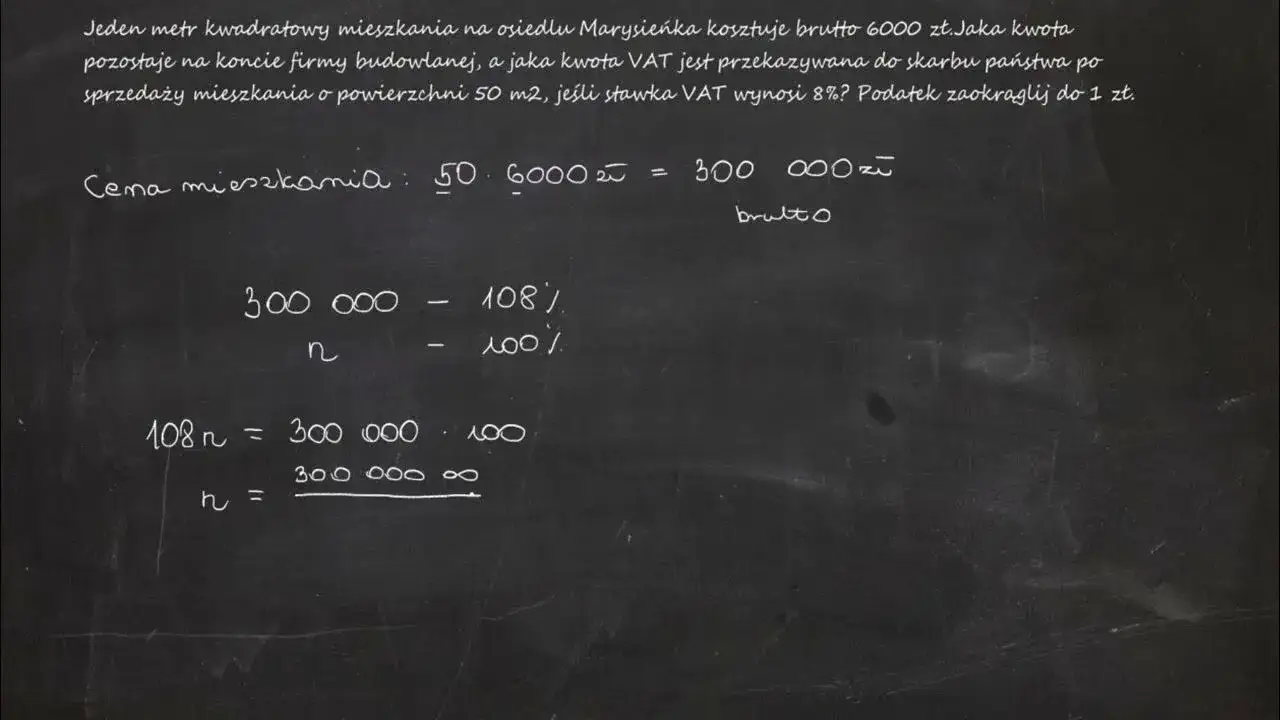 Jeden metr kwadratowy mieszkania na osiedlu Marysieńka kosztuje brutto 6000 zł.Jaka kwota
pozostaje na koncie firmy budowlanej, a jaka kwota VAT jest przekazywana do skarbu państwa po
sprzedaży mieszkania o powierzchni 50 m2, jeśli stawka VAT wynosi 8%? Podatek zaokrąglij do 1 zł.
Cena mieszkania: 50 · 6000 zł = 300 000 zł
brutto
300 000 - 108%
n - 100%
108n = 300 000 · 100
300 000 00
n =